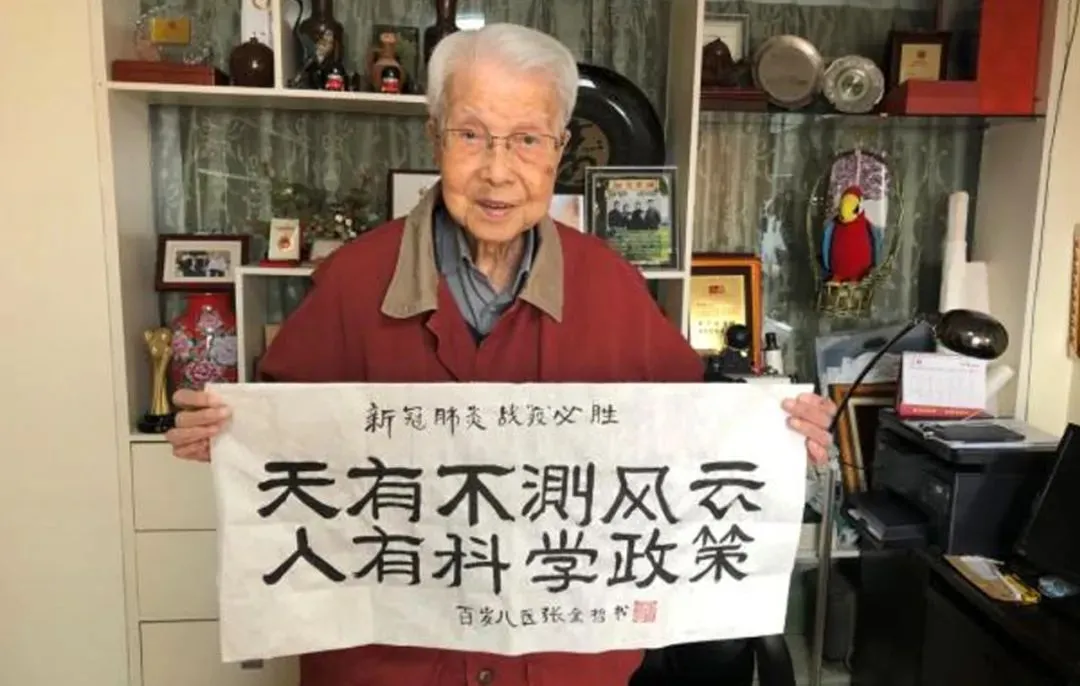 新冠肺炎战疫必胜
天有不測风云
人有科学政策
百岁儿医张金哲书